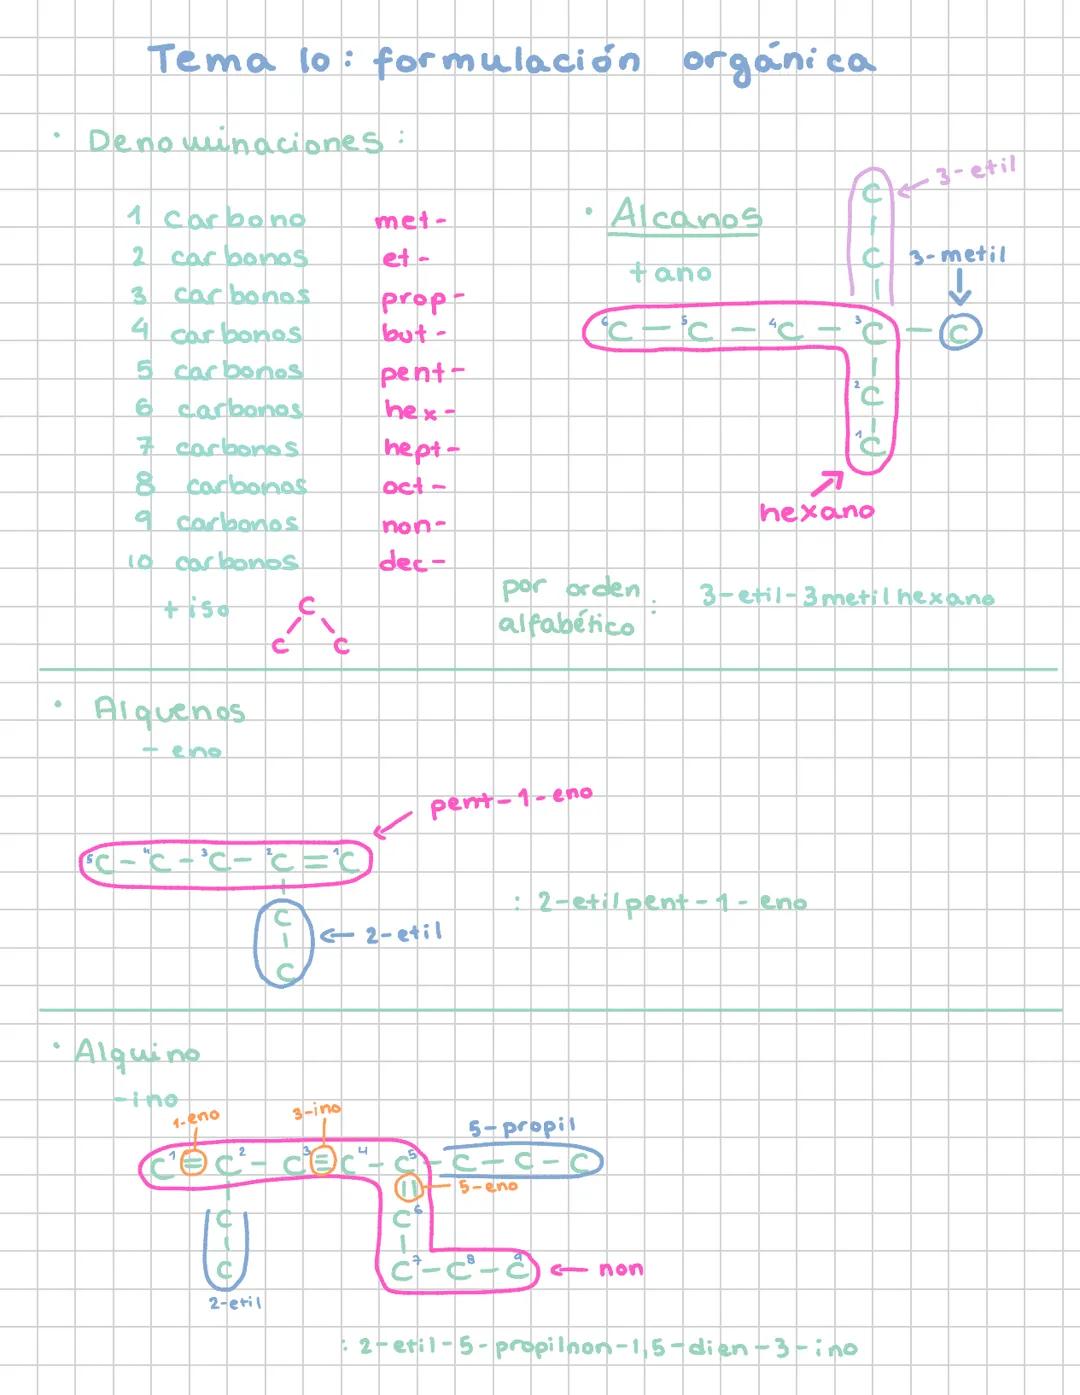 Tema 10: formulación orgánica
· Denominaciones:
1 carbono met-
2 carbonos et-
3 carbonos prop-
4 carbonos but-
5 carbonos pent-
6 carbonos hex-
7 carbonos hept-
8 carbonos oct-
9 carbonos non-
10 carbonos dec-
+ iso
C
C C
· Alcanos
+ ano
C ← 3-etil
C 3-metil
⁶C — ⁵C — ⁴C — ³C — C
²C
¹C
hexano
por orden alfabético : 3-etil-3metilhexano
· Alquenos
- eno
pent-1-eno
⁵C - ⁴C - ³C - ²C = ¹C
C
C
← 2-etil
: 2-etilpent-1-eno
· Alquino
-ino
1-eno 3-ino 5-propil
C¹ = C² - C³ ≡ C⁴ - C⁵ - C - C - C
5-eno
C C⁶
C C⁷ - C⁸ - C⁹ ← non
2-etil
: 2-etil-5-propilnon-1,5-dien-3-ino